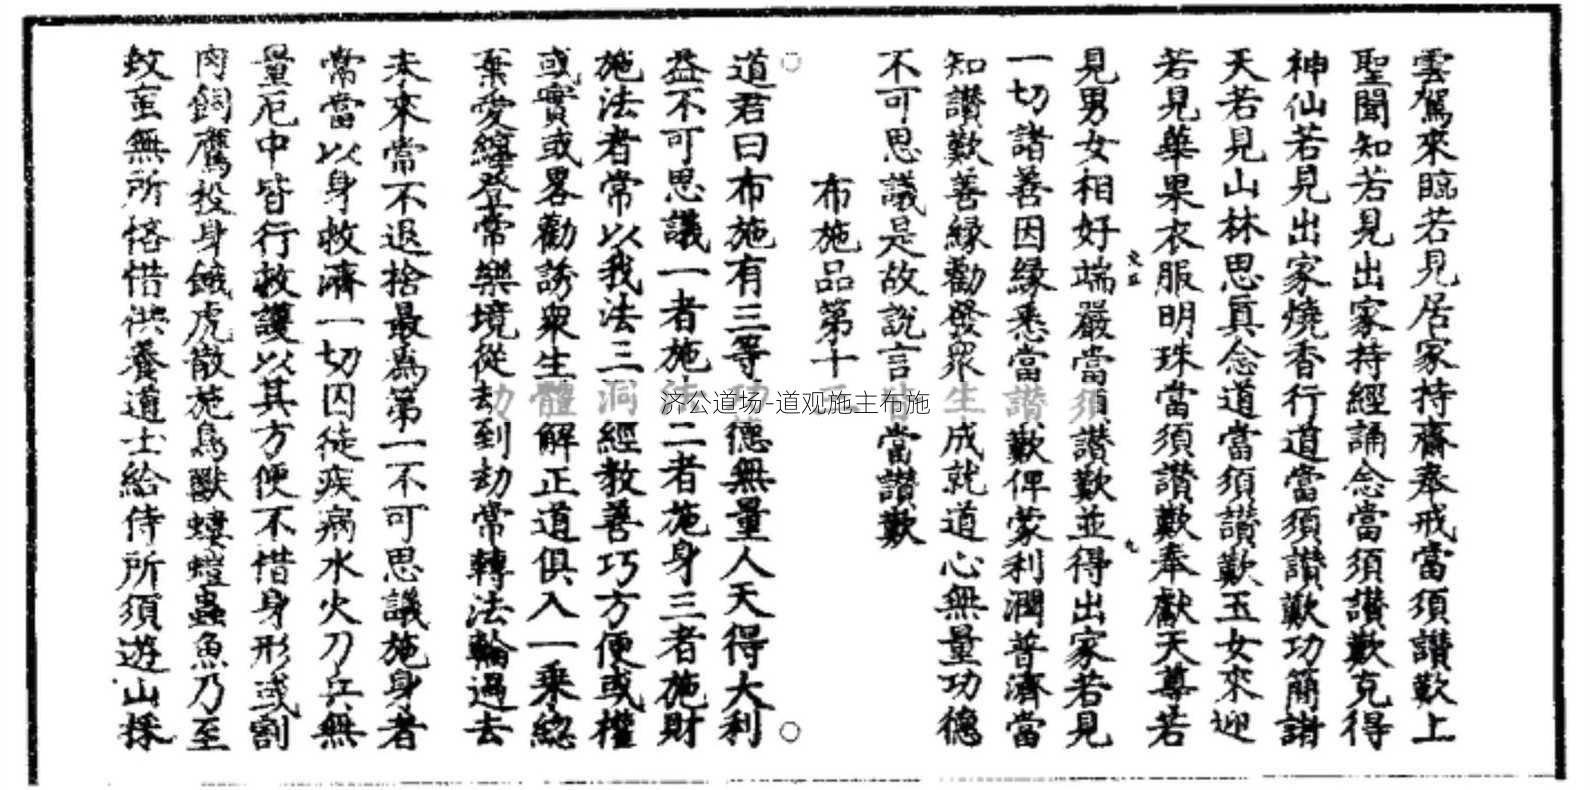 雲駕來臨若見居家持齋奉戒當須讃歎上
聖聞知若見出家持經誦念當須讃歎克得
神仙若見出家燒香行道當須讃歎功簡諸
天若見山林思真念道當須讃歎玉女來迎
若見華果衣服明珠當須讃歎奉獻天尊若
見男女相好端嚴當須讃歎並得出家若見
一切諸善因緣悉當讃歎俾蒙利潤普濟當
知讃歎善緣勸發眾生成就道心無量功德
不可思議是故說言 當讃歎
布施品第十
道君曰布施有三等功德無量人天得大利
益不可思議一者施法二者施身三者施財
施法者常以我法三洞經教善巧方便或權
或實或畧勸誘眾生體解正道俱入一乘總
棄愛纏登常樂境從劫到劫常轉法輪過去
未來常不退捨最為第一不可思議施身者
常當以身救濟一切囚徒疾病水火刀兵無
量厄中皆行救護以其方便不惜身形或割
肉飼鷹投身餓虎散施鳥獸螻螘蟲魚乃至
蚊虻無所悋惜供養道士給侍所須遊山採
济公道场-道观施主布施